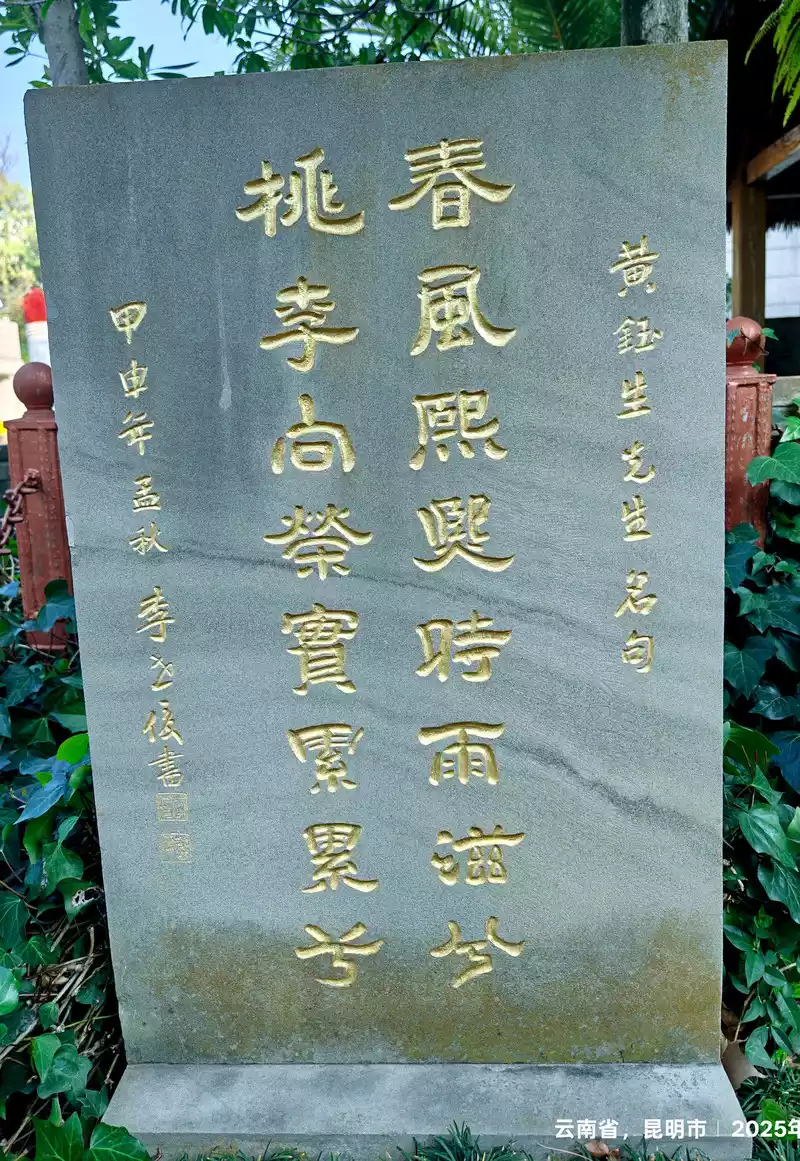 黄鈺生先生名句
春風熙熙時雨滋兮
桃李向榮實累累兮
甲申年孟秋 李 書
云南省，昆明市 | 2025年